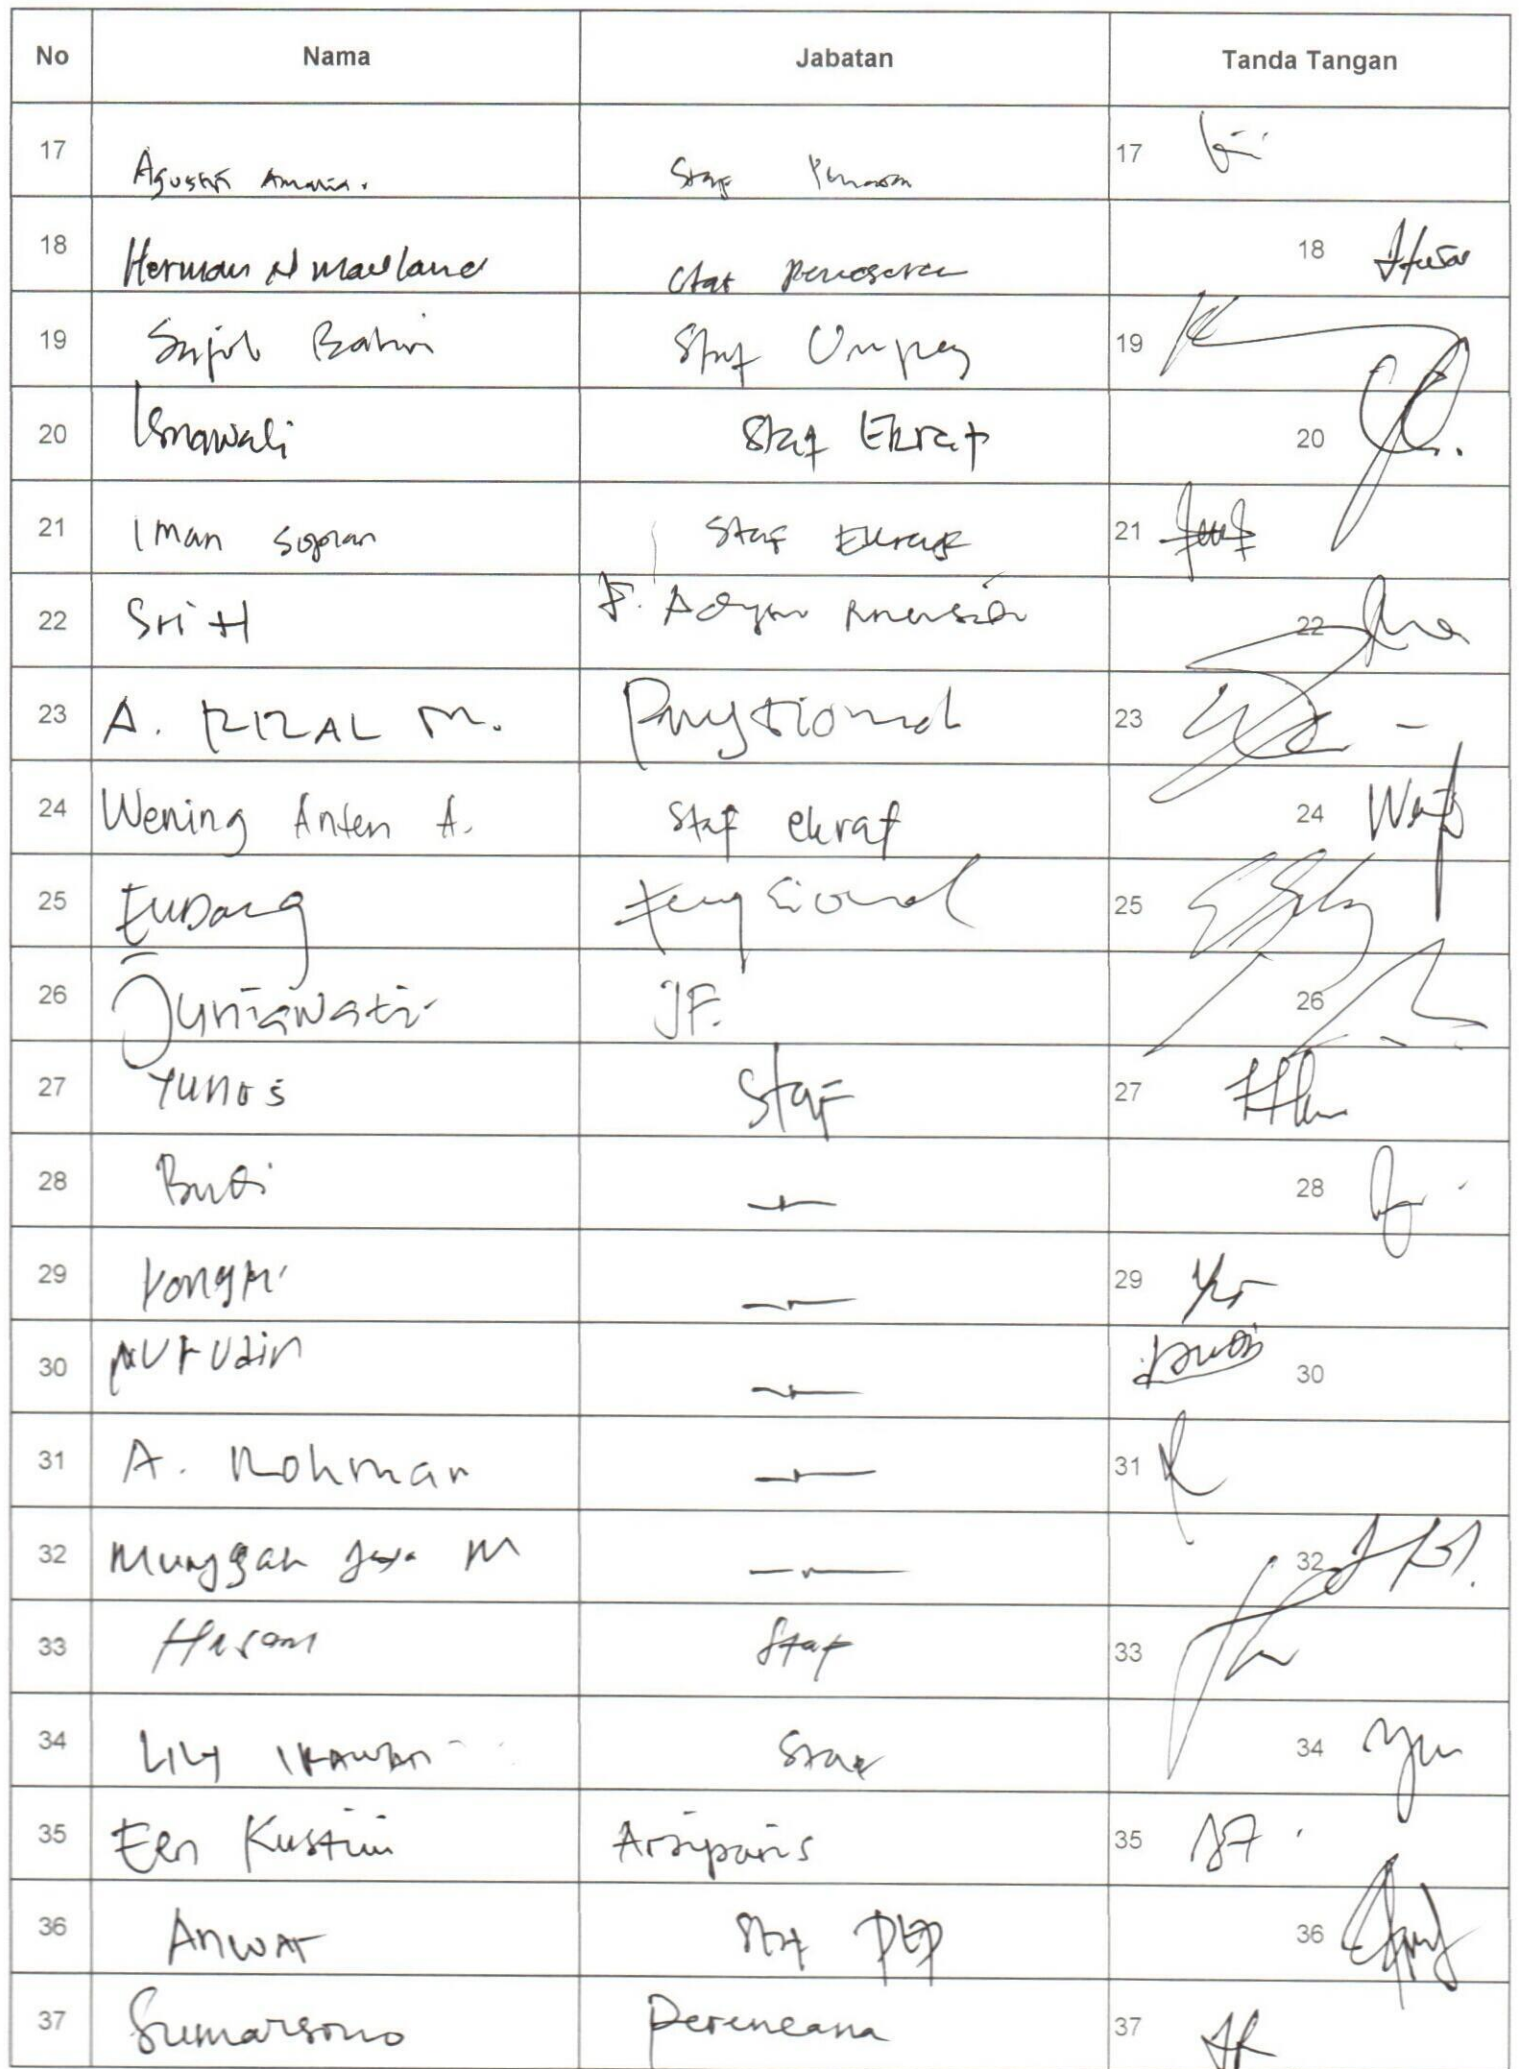 No Nama Jabatan Tanda Tangan
17 Agustin Amania. Staf 17
18 Herman N Maulana Staf Pemasaran 18
19 Saiful Bahri Staf Umpeg 19
20 Ismawati Staf Ekraf 20
21 Iman Sopian Staf Ekraf 21
22 Sri H 22
23 A. RIZAL M. Fungsional 23
24 Wening Anten A. Staf ekraf 24
25 Endang Fungsional 25
26 Juniawati JF. 26
27 Yunus Staf 27
28 Budi 28
29 Yongki 29
30 Nurudin 30
31 A. Rohman 31
32 Munggah Jaya M 32
33 Hasan Staf 33
34 LILY IRAWAN Staf 34
35 Een Kustini Arsiparis 35
36 Anwar Staf PEP 36
37 Sumarsono Perencana 37